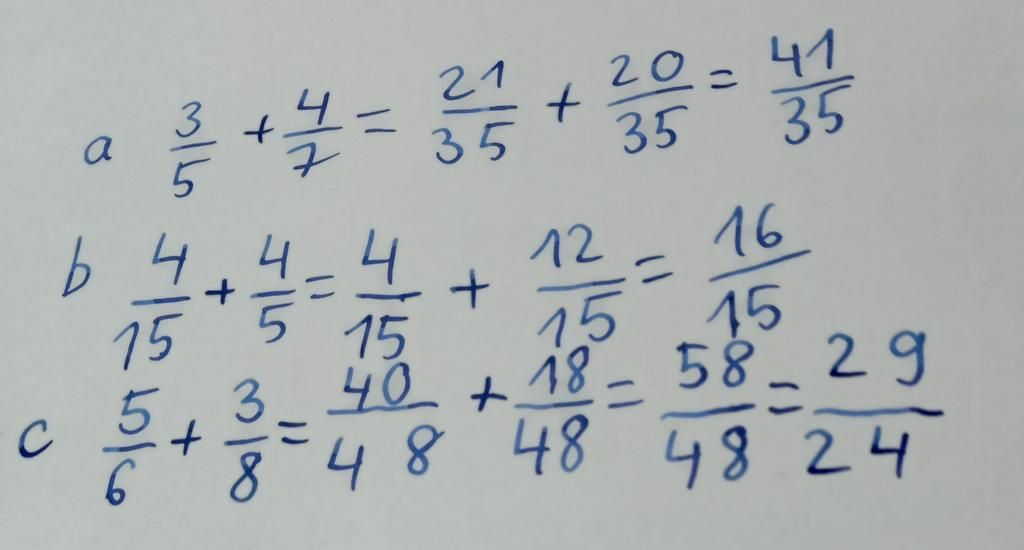 a 3/5 + 4/7 = 21/35 + 20/35 = 41/35
b 4/15 + 4/5 = 4/15 + 12/15 = 16/15
c 5/6 + 3/8 = 40/48 + 18/48 = 58/48 = 29/24